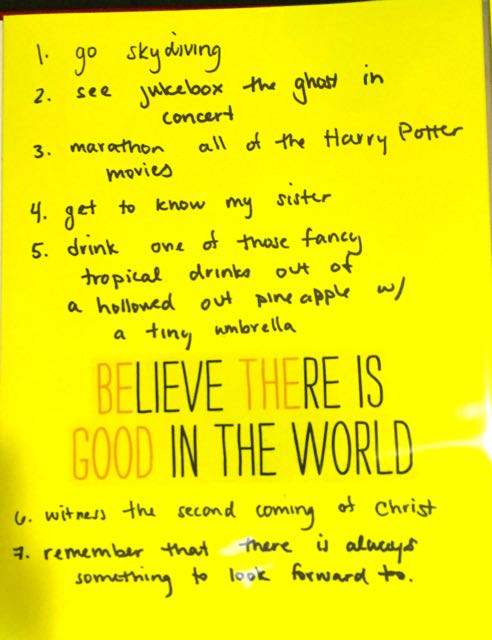 1. go skydiving
2. see jukebox the ghost in
concert
3. marathon all of the Harry Potter
movies
4. get to know my sister
5. drink one of those fancy
tropical drinks out of
a hollowed out pineapple w/
a tiny umbrella
BELIEVE THERE IS
GOOD IN THE WORLD
6. witness the second coming of Christ
7. remember that there is always
something to look forward to.